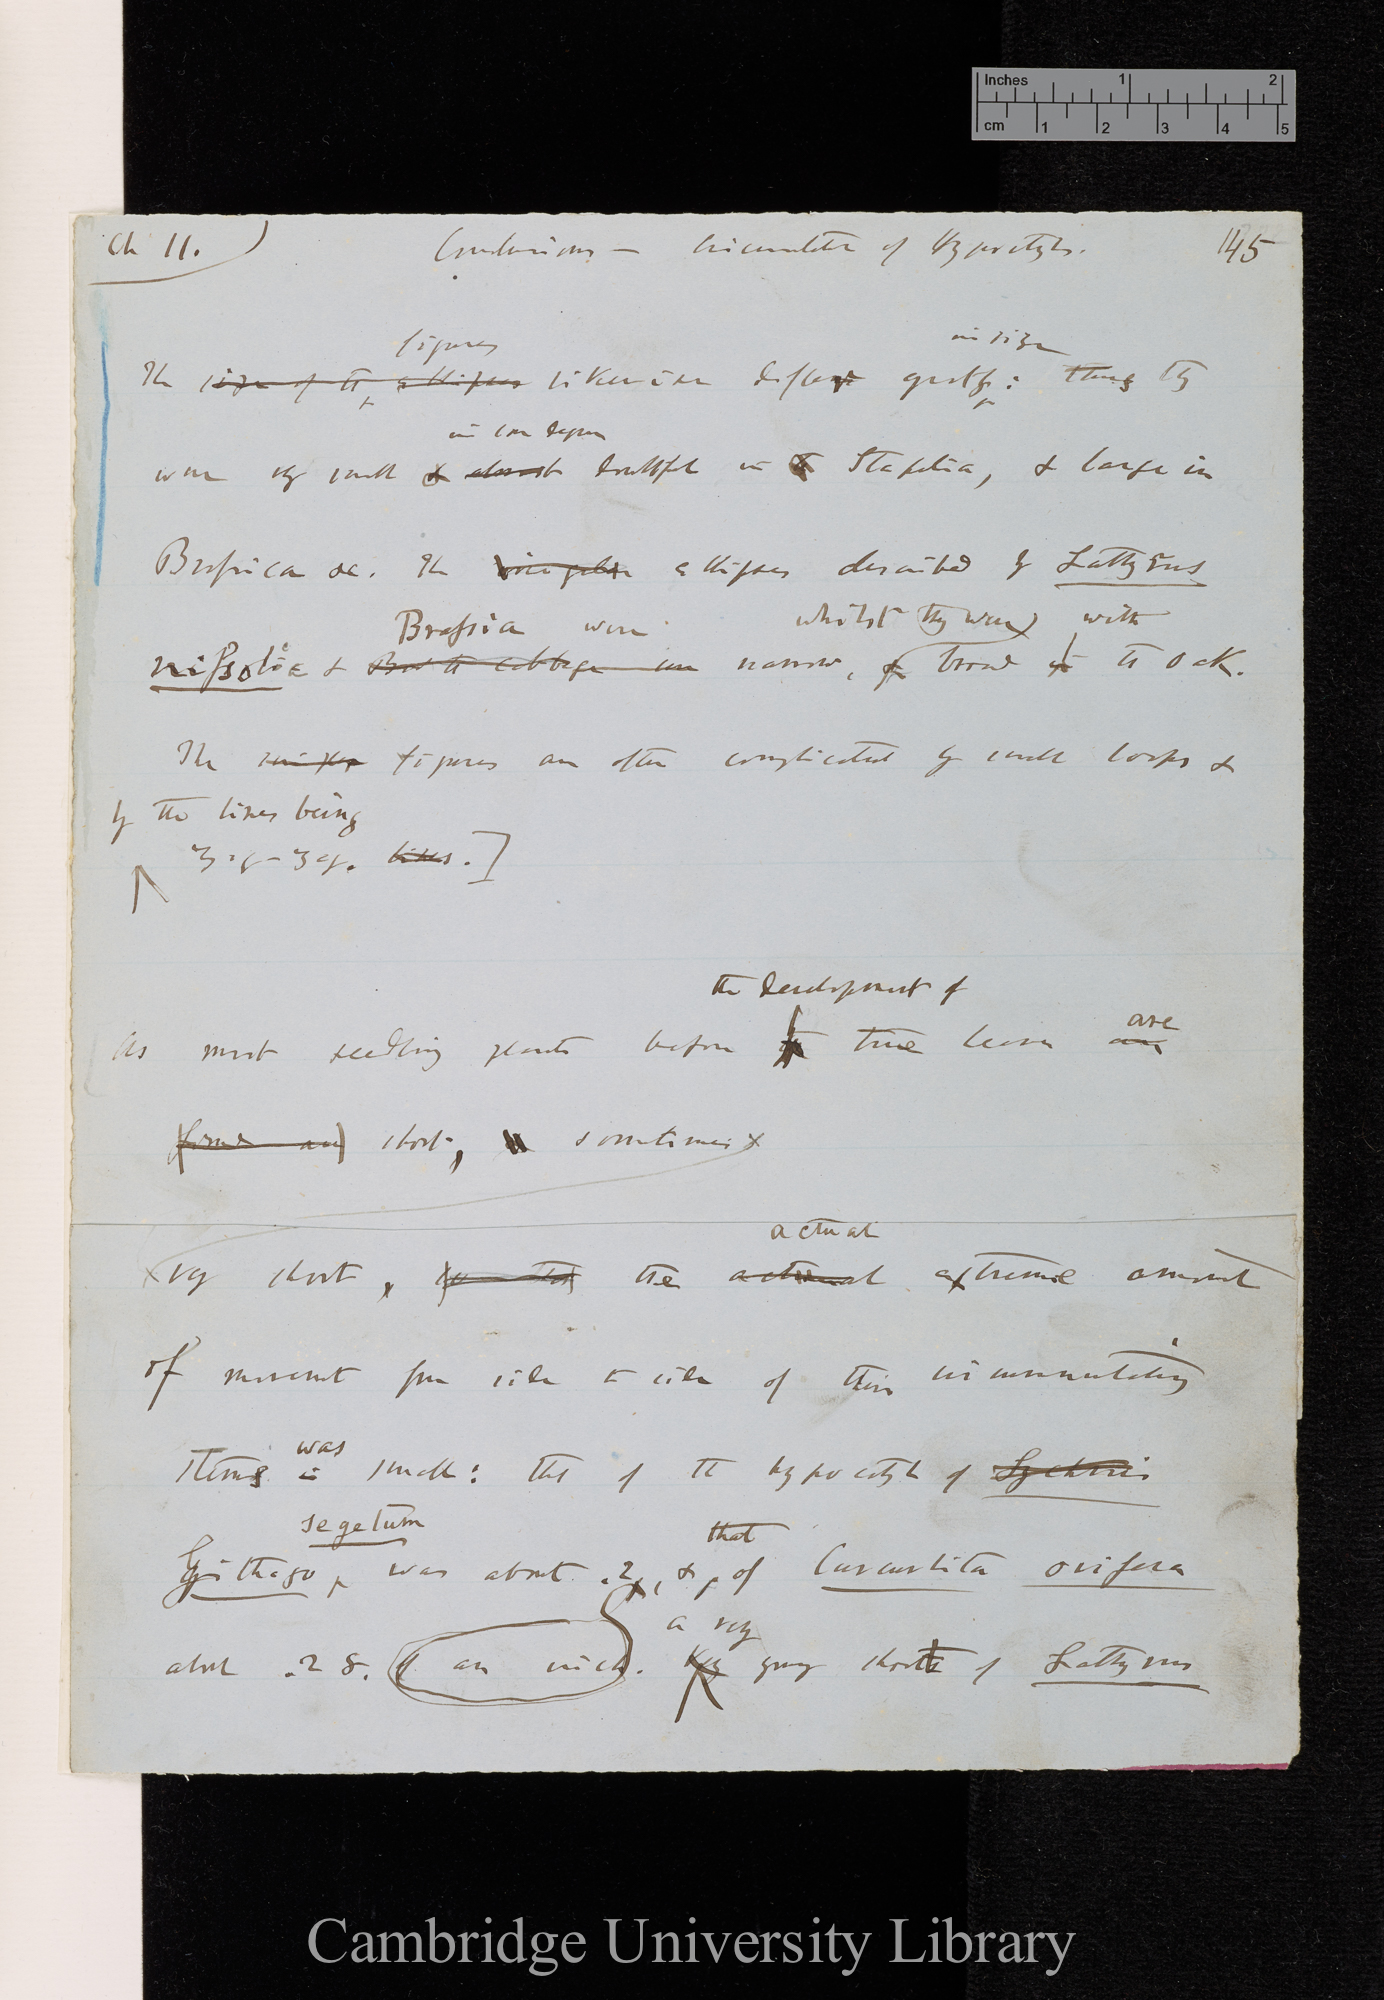 Inches 1 2
cm 1 2 3 4 5
Ch II. Conclusions — Circumnutation of Hypocotyls. 145
figures in size
The size of the ellipses likewise differ greatly: they
in some degree
were very small & almost doubtful in Stapelia, & large in
Brassica &c. The ellipses described by Lathyrus
Brassica were whilst they were with
nissolia & Both the cabbage narrow, & broad the oak.
The figures are often complicated by small loops &
by the lines being
zig-zag. lines.]
the development of
are
As most seedling plants before true leaves are
formed are short, sometimes
actual
very short, the actual extreme amount
of movement from side to side of their circumnutating
was
stems is small: that of the hypocotyl of Lychnis
segetum that
Githago, was about .2, & of Cucurbita ovifera
about .28. of an inch.
a very
very young shoot of Lathyrus
Cambridge University Library